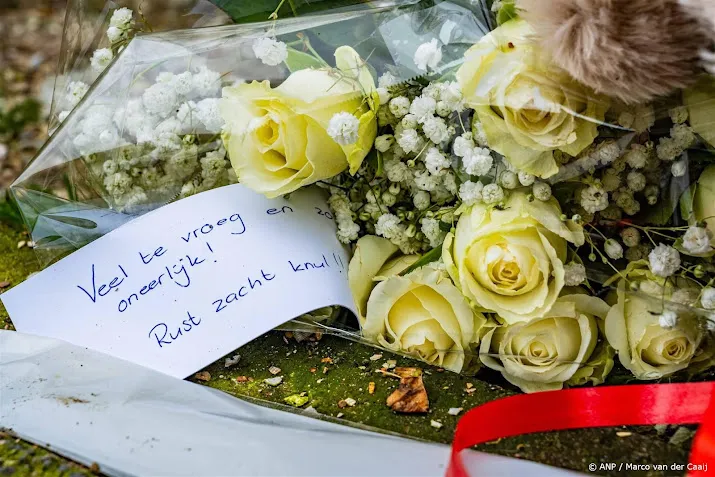 Veel te vroeg en zo
oneerlijk!
Rust zacht knul!!!
© ANP / Marco van der Caaij